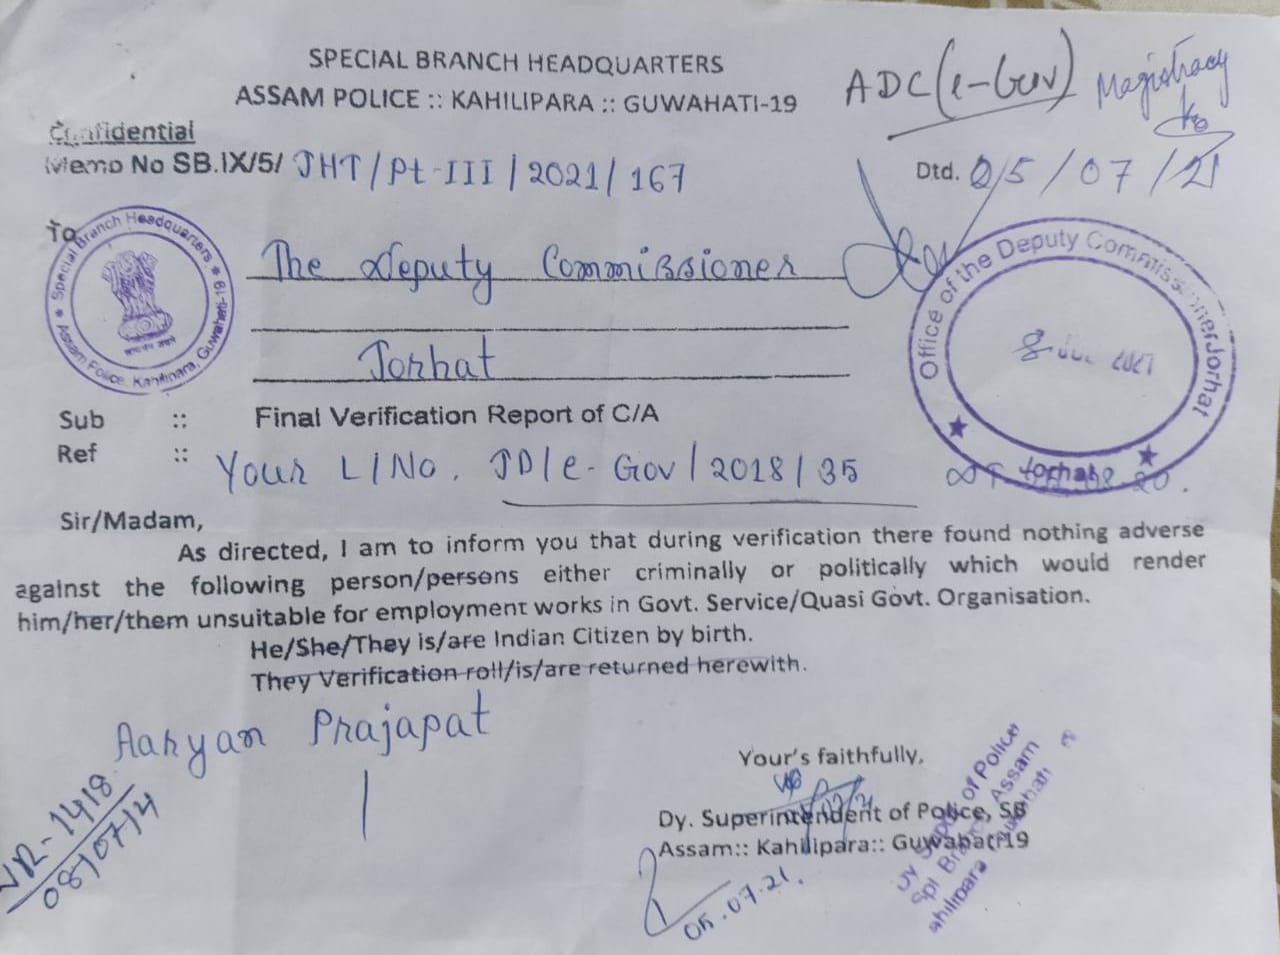 SPECIAL BRANCH HEADQUARTERS
ASSAM POLICE :: KAHILIPARA :: GUWAHATI-19
ADC (e-Gov) Magistracy
Confidential
Memo No SB.IX/5/ JHT/Pt-III/2021/167
Dtd. 05/07/21
To
Special Branch Headquarters ★ Assam Police, Kahilipara, Guwahati-19 ★
सत्यमेव जयते
The Deputy Commissioner
Jorhat
Office of the Deputy Commissioner Jorhat
8 JUL 2021
Jorhat
Sub :: Final Verification Report of C/A
Ref :: Your L/No. JD/e-Gov/2018/35
Sir/Madam,
As directed, I am to inform you that during verification there found nothing adverse
against the following person/persons either criminally or politically which would render
him/her/them unsuitable for employment works in Govt. Service/Quasi Govt. Organisation.
He/She/They is/are Indian Citizen by birth.
They Verification roll/is/are returned herewith.
Aaryan Prajapat
1
VR-1418
08/07/14
Your's faithfully,
Dy. Superintendent of Police, SB
Assam:: Kahilipara:: Guwahati-19
05.07.21.
Dy Supdt of Police
Spl Branch, Assam
ahilipara Guwahati